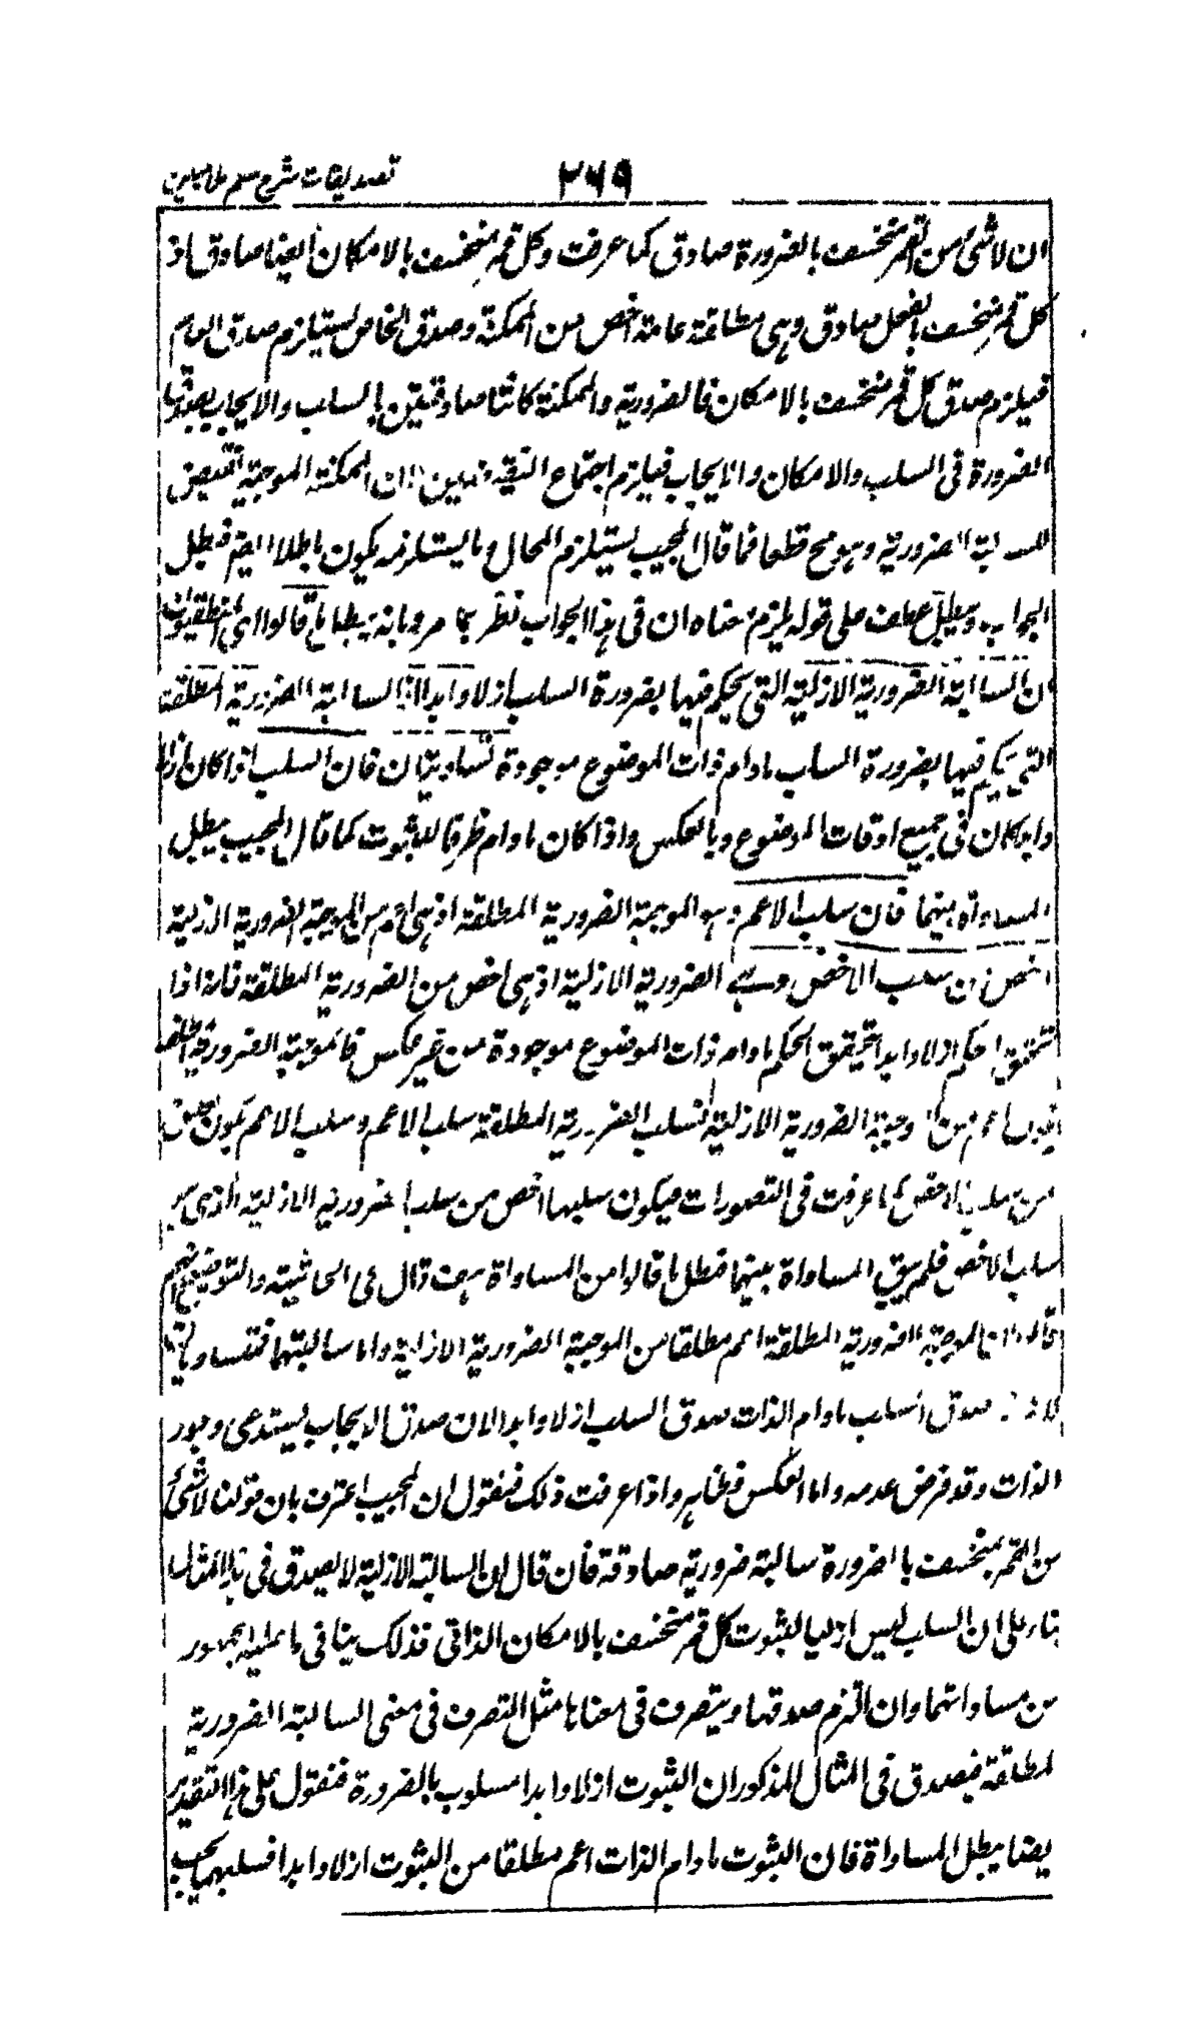 تصديقات شرح سلم ملا مبين
٢٦٩
ان لا شئ من القمر بمنخسف بالضرورة صادق كما عرفت وكل قمر منخسف بالامكان ايضا صادق اذ
كل قمر منخسف بالفعل صادق وهى مطلقة عامة اخص من الممكنة وصدق الخاص يستلزم صدق العام
فيلزم صدق كل قمر منخسف بالامكان فالضرورية والممكنة كانتا صادقتين بالسلب والايجاب بصدق
الضرورة فى السلب والامكان والايجاب فيلزم اجتماع النقيضين اذ ان الممكنة الموجبة نقيض
للسالبة الضرورية وهو مح قطعا فما قال المجيب يستلزم المحال وما يستلزمه يكون باطلا ايضا فبطل
الجواب ويبطل عطف على قوله يلزم معناه ان فى هذا الجواب نظر بما مر وبانه يبطل ما قالوا اى المنطقيون
ان السالبة الضرورية الازلية التى يحكم فيها بضرورة السلب ازلا وابدا والسالبة الضرورية المطلقة
التى يحكم فيها بضرورة السلب مادام ذات الموضوع موجودة متساويتان فان السلب اذا كان ازلا
وابدا كان فى جميع اوقات الموضوع وبالعكس واذا كان مادام ظرفا للثبوت كما قال المجيب يبطل
المساواة بينهما فان سلب الاعم وهو الموجبة الضرورية المطلقة اذ هى اعم من الموجبة الضرورية الازلية
اخص من سلب الاخص وهى الضرورية الازلية اذ هى اخص من الضرورية المطلقة فانه اذا
تحقق الحكم ازلا وابدا تحقق الحكم مادام ذات الموضوع موجودة من غير عكس فالموجبة الضرورية المطلقة
اعم من الموجبة الضرورية الازلية فسلب الضرورية المطلقة سلب الاعم وسلب الاعم يكون اخص
من سلب الاخص كما عرفت فى التصورات فيكون سلبها اخص من سلب الضرورية الازلية الذى هو
سلب الاخص فلم يبق المساواة بينهما فبطل ما قالوا من المساواة هف قال فى الحاشية والتوضيح انهم
قالوا ان الموجبة الضرورية المطلقة اعم مطلقا من الموجبة الضرورية الازلية واما سالبتهما فمتساويان
صدق السلب مادام الذات صدق السلب ازلا وابدا لان صدق الايجاب يستدعى وجود
الذات وقد فرض عدمه واما العكس فظاهر واذا عرفت ذلك فنقول ان المجيب اعترف بان قولنا لا شئ
من القمر بمنخسف بالضرورة سالبة ضرورية صادقة فان قال ان السالبة الازلية لا يصدق فى هذا المثال
بناء على ان السلب ليس ازليا لثبوت كل قمر منخسف بالامكان الذاتى فذلك ينافى ما عليه الجمهور
من مساواتهما وان التزم صدقها ويتصرف فى معناها مثل التصرف فى معنى السالبة الضرورية
المطلقة فيصدق فى المثال المذكور ان الثبوت ازلا وابدا مسلوب بالضرورة فنقول على هذا التقدير
ايضا يبطل المساواة فان الثبوت مادام الذات اعم مطلقا من الثبوت ازلا وابدا فسلبهما يجب